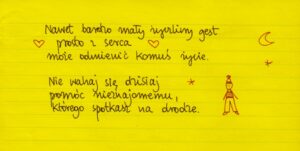 Nawet bardzo mały życzliwy gest
prosto z serca
może odmienić komuś życie.
Nie wahaj się dzisiaj
pomóc nieznajomemu,
którego spotkasz na drodze.